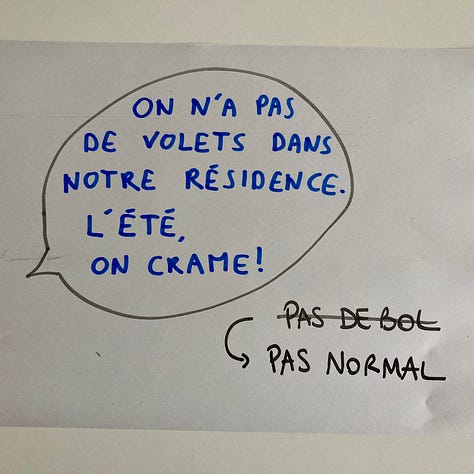 ON N'A PAS
DE VOLETS DANS
NOTRE RÉSIDENCE.
L'ÉTÉ,
ON CRAME!
PAS DE BOL
PAS NORMAL